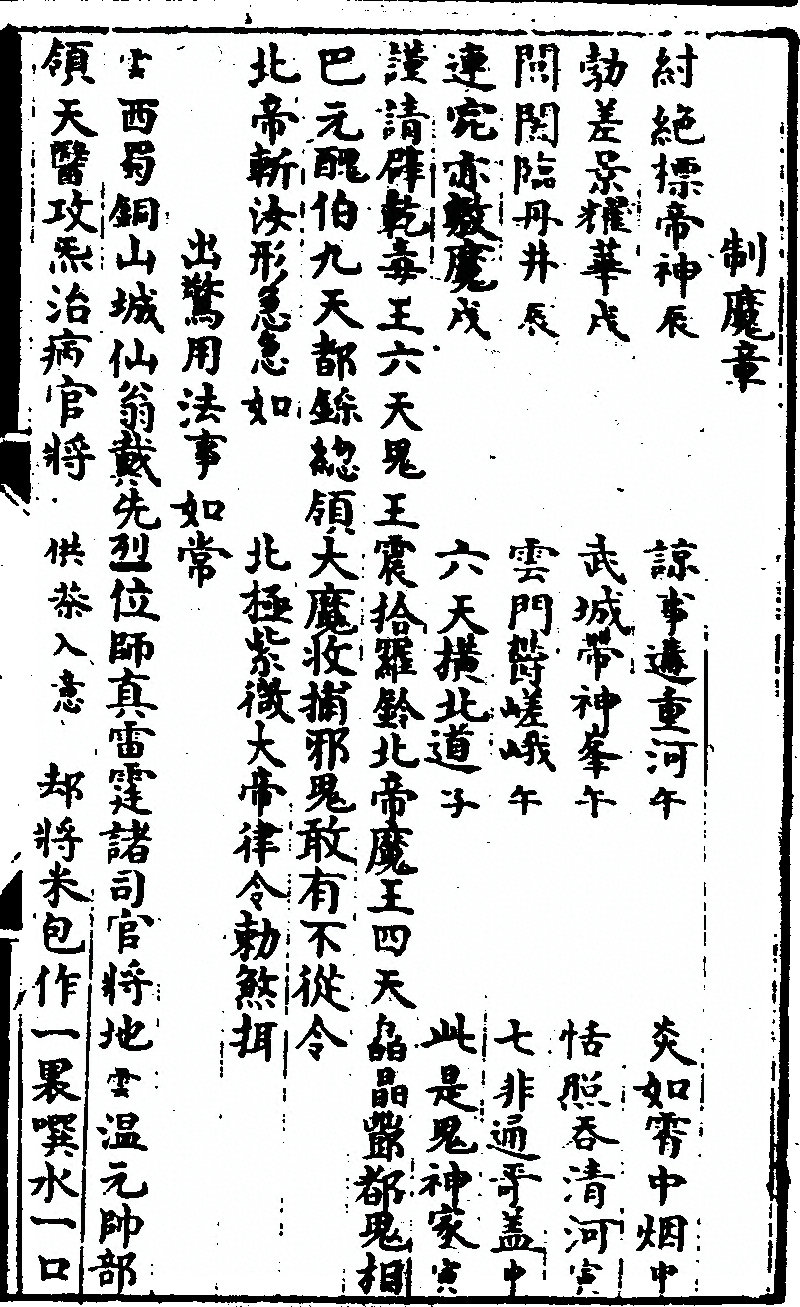 制魔章
紂絕標帝神辰 諒事遘重河午 炎如霄中烟申
勃差景耀華戌 武城帶神峯午 恬照吞清河寅
閶闔臨丹井辰 雲門鬱嵯峨午 七非通哥盖申
連宛亦敷魔戌 六天横北道子 此是鬼神家寅
謹請辟乾毒王六天鬼王震拾羅鈴北帝魔王四天酆都鬼相
巴元醜伯九天都錄總領大魔收捕邪鬼敢有不從令
北帝斬汝形急急如 北極紫微大帝律令勅煞
出驚用法事如常
雲西蜀銅山城仙翁戴先烈位師真雷霆諸司官將地雲温元帥部
領天醫攻炁治病官將 供茶入意 却將米包作一裹噀水一口